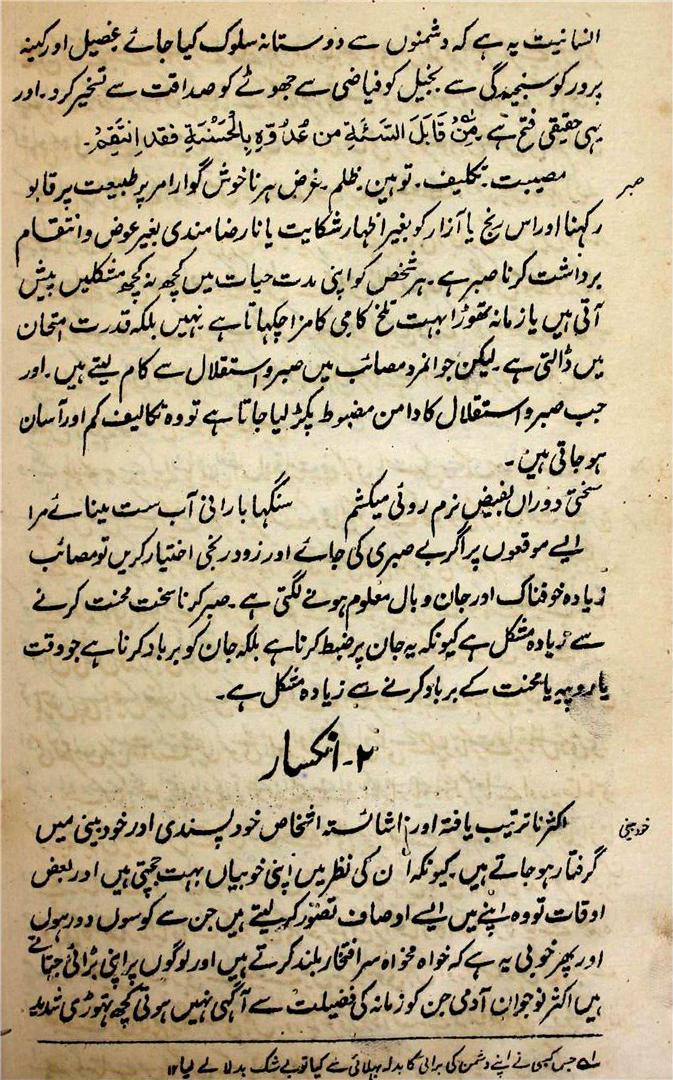 انسانیت یہ ہے کہ دشمنوں سے دوستانہ سلوک کیا جائے غصیل اور کینہ
پرور کو سنجیدگی سے بخیل کو فیاضی سے جھوٹے کو صداقت سے تسخیر کرو۔ اور
یہی حقیقی فتح ہے۔ مَنْ قَابَلَ السَّئَۃِ من عُدُوِّہٖ بِالْحَسَنَۃِ فقد اِنْتَقِمْ۔
صبر
مصیبت۔ تکلیف۔ توہین۔ ظلم۔ غرض ہر ناخوش گوار امر پر طبیعت پر قابو
رکہنا اور اس رنج یا آزار کو بغیر اظہار شکایت یا نا رضامندی بغیر عوض و انتقام
برداشت کرنا صبر ہے۔ ہر شخص کو اپنی مدت حیات میں کچھ نہ کچھ مشکلیں پیش
آتی ہیں یا زمانہ تھوڑا بہت تلخ کامی کا مزا چکہاتا ہے۔ نہیں بلکہ قدرت امتحان
میں ڈالتی ہے۔ لیکن جوانمرد مصائب میں صبر و استقلال سے کام لیتے ہیں۔ اور
جب صبر و استقلال کا دامن مضبوط پکڑ لیا جاتا ہے تو وہ تکالیف کم اور آسان
ہو جاتی ہیں۔
سختیٔ دوراں بفیض نرم روئی میکشم سنگہا بارانی آب ست مینائے مرا
ایسے موقعوں پر اگر بے صبری کی جائے اور زود رنجی اختیار کریں تو مصائب
زیادہ خوفناک اور جان وبال معلوم ہونے لگتی ہے۔ صبر کرنا سخت محنت کرنے
سے زیادہ مشکل ہے کیونکہ یہ جان پر ضبط کرنا ہے بلکہ جان کو برباد کرنا ہے جو وقت
یا روپیہ یا محنت کے برباد کرنے سے زیادہ مشکل ہے۔
۲۔ انکسار
خودبینی
اکثر نا ترتیب یافتہ اور ناشائستہ اشخاص خود پسندی اور خود بینی میں
گرفتار ہو جاتے ہیں۔ کیونکہ ان کی نظر میں اپنی خوبیاں بہت جچتی ہیں اور بعض
اوقات تو وہ اپنے میں ایسے اوصاف تصور کر لیتے ہیں جن سے کوسوں دور ہوں
اور پھر خوبی یہ ہے کہ خواہ مخواہ سر افتخار بلند کرتے ہیں اور لوگوں پر اپنی بڑائی جتاتے
ہیں اکثر نوجوان آدمی جن کو زمانہ کی فضیلت سے آگہی نہیں ہوتی کچھ تہوڑی
لہ جس کسی نے اپنے دشمن کی برائی کا بدلہ بہلائی سے کیا تو بے شک بدلا لے لیا ۱۲